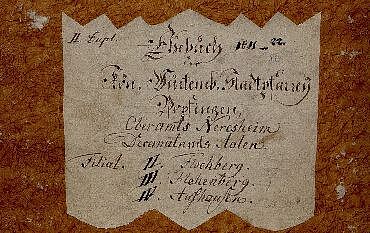 II Expl. Ehebuch 1811-22.
der
Kön. Würtemb. Stadtpfarrey
Bopfingen,
Oberamts Neresheim
Decanatamts Aalen.
Filial. II. Flochberg.
III. Hohenberg.
IV. Aufhausen.